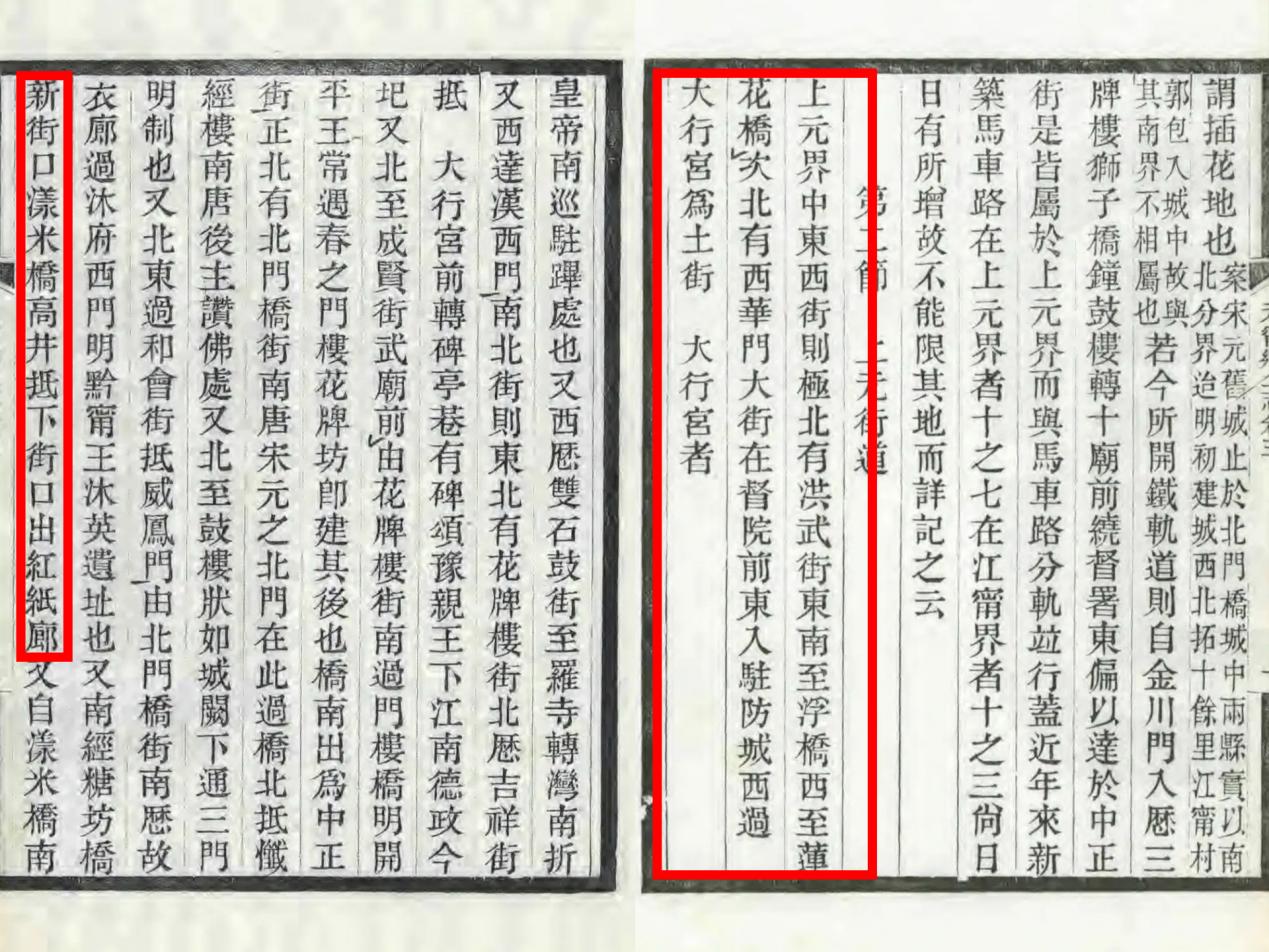 謂插花地也案宋元舊城止於北門橋城中兩縣實以南
北分界迨明初建城西北拓十餘里江甯村
郭包入城中故與
其南界不相屬也若今所開鐵軌道則自金川門入厯三
牌樓獅子橋鐘鼓樓轉十廟前繞督署東偏以達於中正
街是皆屬於上元界而與馬車路分軌竝行蓋近年來新
築馬車路在上元界者十之七在江甯界者十之三尙日
日有所增故不能限其地而詳記之云
第二節　上元街道
上元界中東西街則極北有洪武街東南至浮橋西至蓮
花橋次北有西華門大街在督院前東入駐防城西過
大行宮爲土街　大行宮者
皇帝南巡駐蹕處也又西厯雙石鼓街至羅寺轉灣南折
又西達漢西門南北街則東北有花牌樓街北厯吉祥街
抵　大行宮前轉碑亭巷有碑頌豫親王下江南德政今
圯又北至成賢街武廟前由花牌樓街南過門樓橋明開
平王常遇春之門樓花牌坊卽建其後也橋南出爲中正
街正北有北門橋街南唐宋元之北門在此過橋北抵懺
經樓南唐後主讚佛處又北至鼓樓狀如城闕下通三門
明制也又北東過和會街抵威鳳門由北門橋街南厯故
衣廊過沐府西門明黔甯王沐英遺址也又南經糖坊橋
新街口漾米橋高井抵下街口出紅紙廊又自漾米橋南